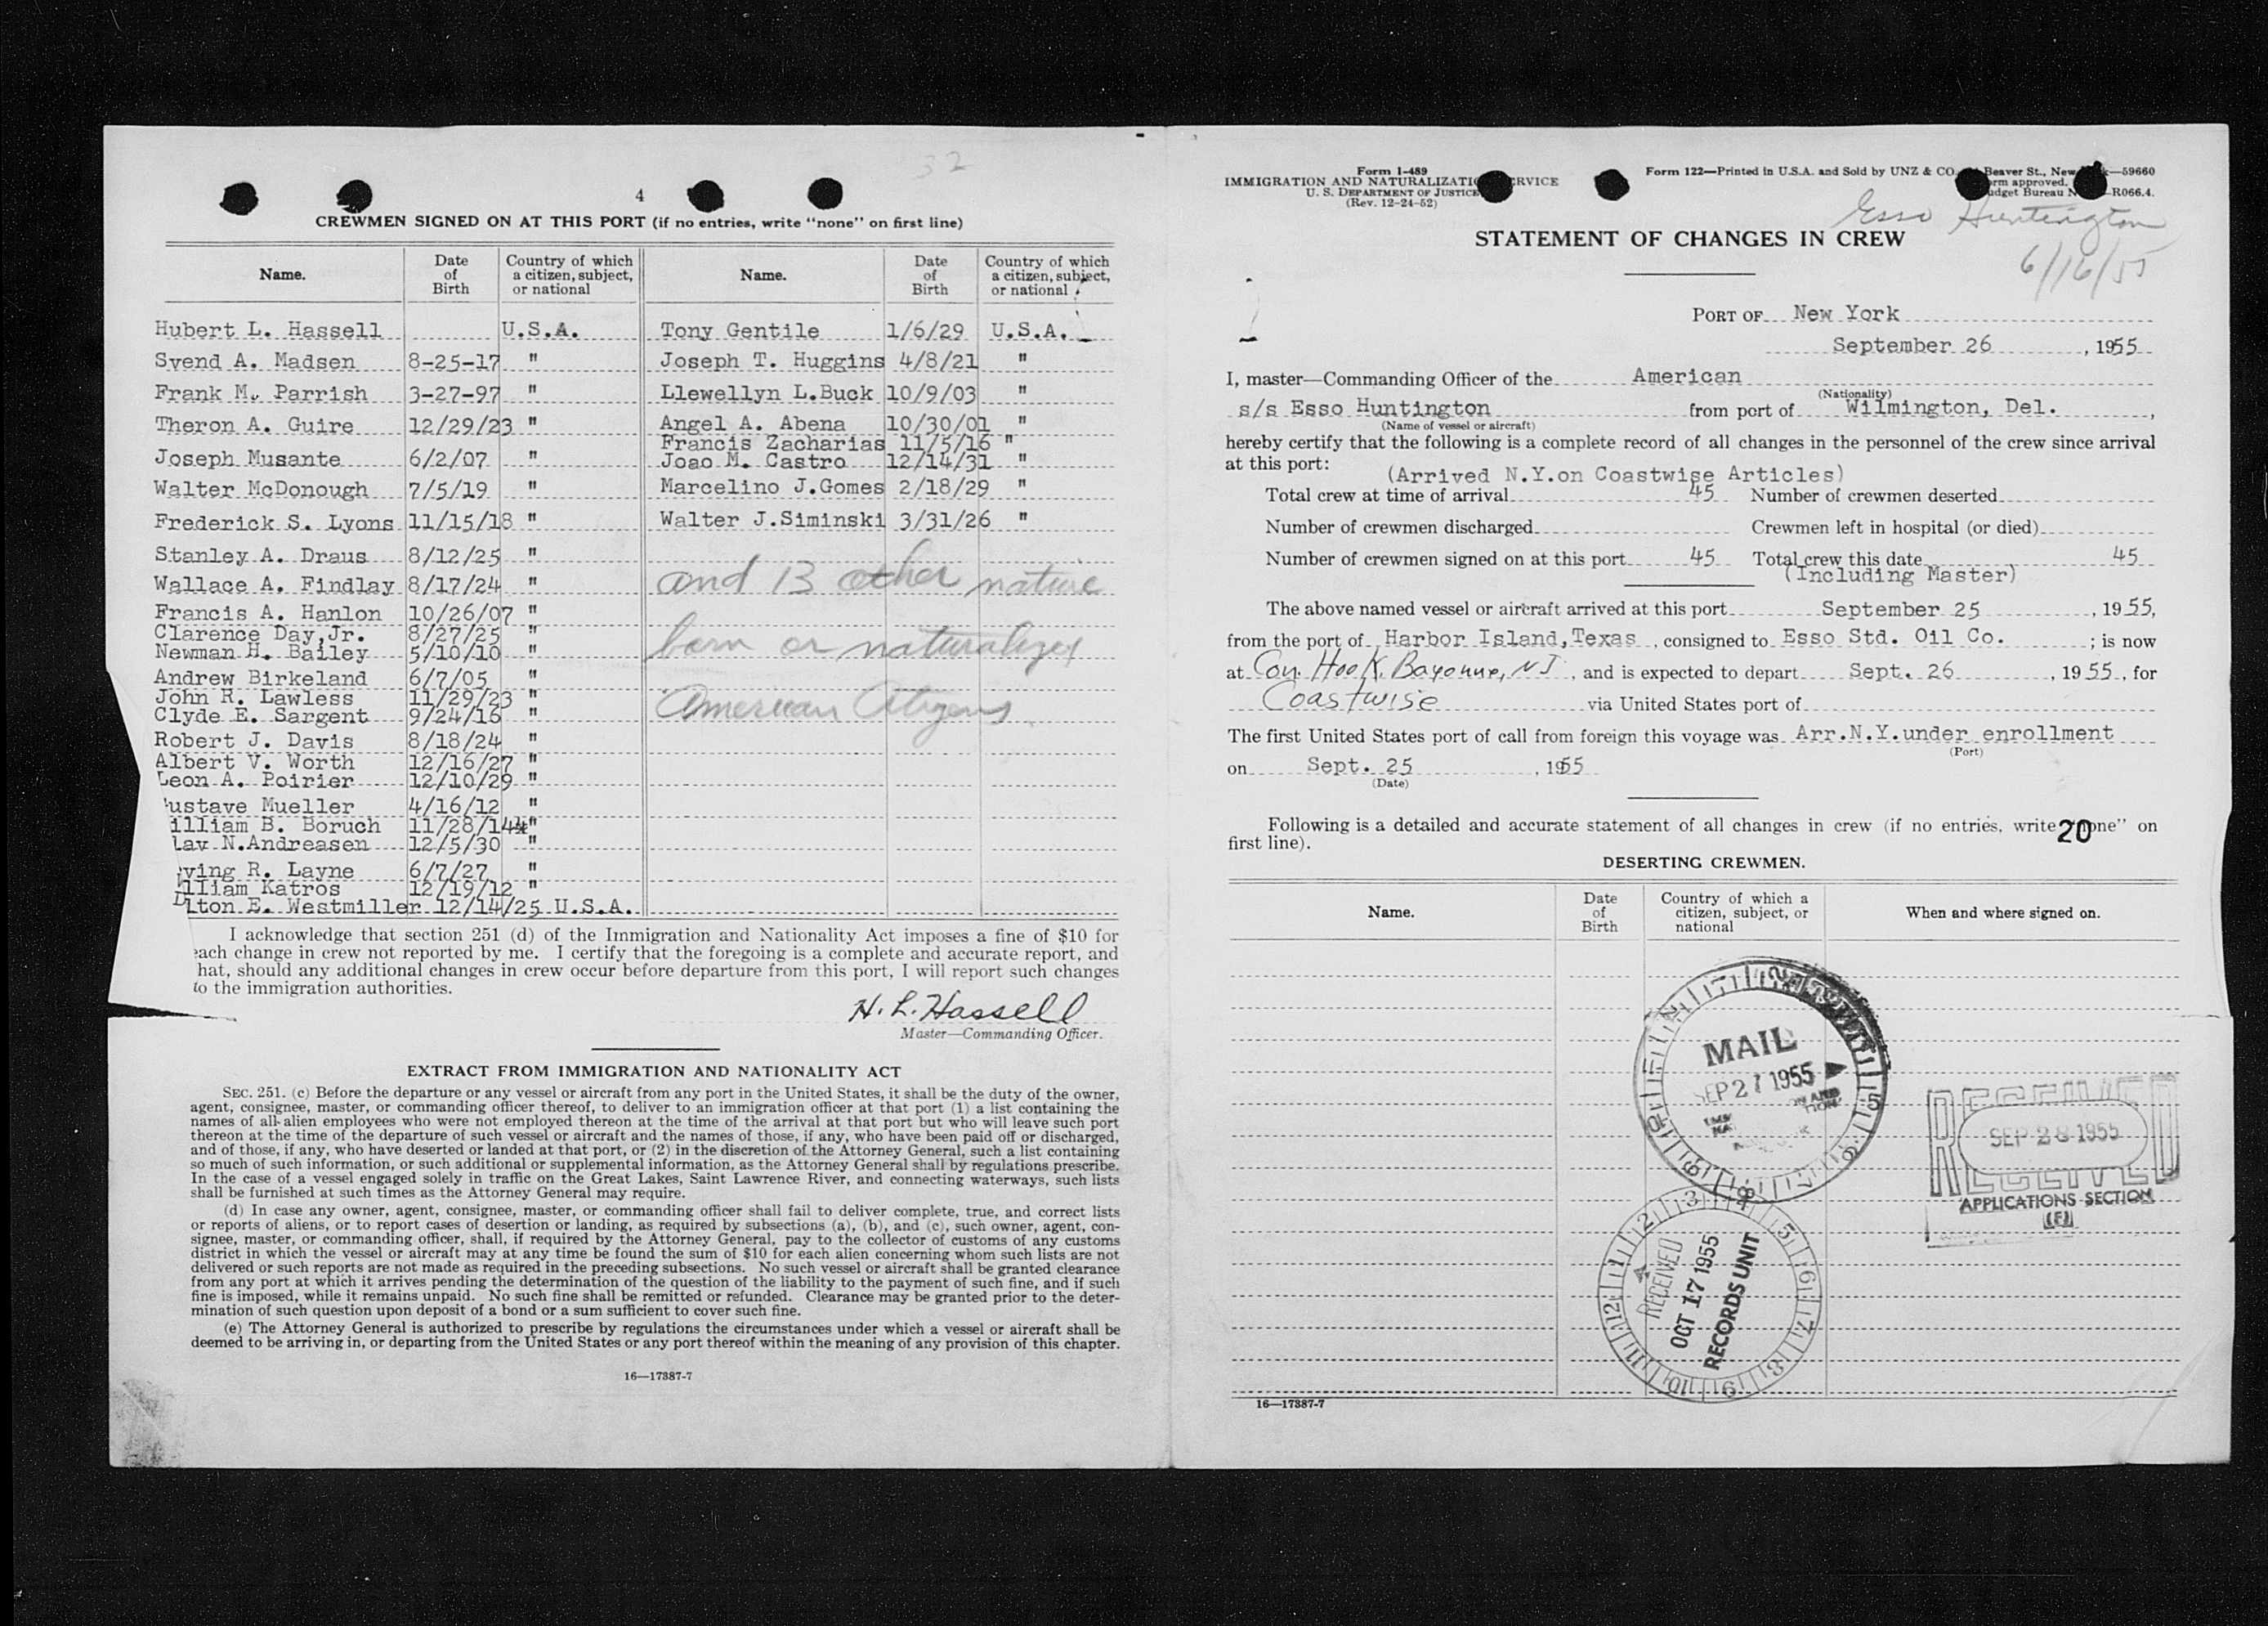 32
4
CREWMEN SIGNED ON AT THIS PORT (if no entries, write "none" on first line)
Name. Date of Birth Country of which a citizen, subject, or national Name. Date of Birth Country of which a citizen, subject, or national
Hubert L. Hassell U.S.A. Tony Gentile 1/6/29 U.S.A.
Svend A. Madsen 8-25-17 " Joseph T. Huggins 4/8/21 "
Frank M. Parrish 3-27-97 " Llewellyn L.Buck 10/9/03 "
Theron A. Guire 12/29/23 " Angel A. Abena 10/30/01 "
Francis Zacharias 11/5/16 "
Joseph Musante 6/2/07 " Joao M. Castro 12/14/31 "
Walter McDonough 7/5/19 " Marcelino J.Gomes 2/18/29 "
Frederick S. Lyons 11/15/18 " Walter J.Siminski 3/31/26 "
Stanley A. Draus 8/12/25 "
Wallace A. Findlay 8/17/24 " and 13 other native
Francis A. Hanlon 10/26/07 "
Clarence Day,Jr. 8/27/25 " born or naturalized
Newman H. Bailey 5/10/10 "
Andrew Birkeland 6/7/05 "
John R. Lawless 11/29/23 " American Citizens
Clyde E. Sargent 9/24/16 "
Robert J. Davis 8/18/24 "
Albert V. Worth 12/16/27 "
Leon A. Poirier 12/10/29 "
ustave Mueller 4/16/12 "
illiam B. Boruch 11/28/14 "
lav N.Andreasen 12/5/30 "
ving R. Layne 6/7/27 "
lliam Katros 12/19/12 "
lton E. Westmiller 12/14/25 U.S.A.
I acknowledge that section 251 (d) of the Immigration and Nationality Act imposes a fine of $10 for
each change in crew not reported by me. I certify that the foregoing is a complete and accurate report, and
hat, should any additional changes in crew occur before departure from this port, I will report such changes
to the immigration authorities.
H. L. Hassell
Master—Commanding Officer.
EXTRACT FROM IMMIGRATION AND NATIONALITY ACT
SEC. 251. (c) Before the departure or any vessel or aircraft from any port in the United States, it shall be the duty of the owner,
agent, consignee, master, or commanding officer thereof, to deliver to an immigration officer at that port (1) a list containing the
names of all alien employees who were not employed thereon at the time of the arrival at that port but who will leave such port
thereon at the time of the departure of such vessel or aircraft and the names of those, if any, who have been paid off or discharged,
and of those, if any, who have deserted or landed at that port, or (2) in the discretion of the Attorney General, such a list containing
so much of such information, or such additional or supplemental information, as the Attorney General shall by regulations prescribe.
In the case of a vessel engaged solely in traffic on the Great Lakes, Saint Lawrence River, and connecting waterways, such lists
shall be furnished at such times as the Attorney General may require.
(d) In case any owner, agent, consignee, master, or commanding officer shall fail to deliver complete, true, and correct lists
or reports of aliens, or to report cases of desertion or landing, as required by subsections (a), (b), and (c), such owner, agent, con-
signee, master, or commanding officer, shall, if required by the Attorney General, pay to the collector of customs of any customs
district in which the vessel or aircraft may at any time be found the sum of $10 for each alien concerning whom such lists are not
delivered or such reports are not made as required in the preceding subsections. No such vessel or aircraft shall be granted clearance
from any port at which it arrives pending the determination of the question of the liability to the payment of such fine, and if such
fine is imposed, while it remains unpaid. No such fine shall be remitted or refunded. Clearance may be granted prior to the deter-
mination of such question upon deposit of a bond or a sum sufficient to cover such fine.
(e) The Attorney General is authorized to prescribe by regulations the circumstances under which a vessel or aircraft shall be
deemed to be arriving in, or departing from the United States or any port thereof within the meaning of any provision of this chapter.
16—17387-7
Form I-489
IMMIGRATION AND NATURALIZATI RVICE
U. S. DEPARTMENT OF JUSTICE
(Rev. 12-24-52)
Form 122—Printed in U.S.A. and Sold by UNZ & CO. Beaver St., New —59660
rm approved.
udget Bureau N R066.4.
Esso Huntington
6/16/55
STATEMENT OF CHANGES IN CREW
PORT OF New York
September 26, 1955
I, master—Commanding Officer of the American
(Nationality)
s/s Esso Huntington from port of Wilmington, Del.,
(Name of vessel or aircraft)
hereby certify that the following is a complete record of all changes in the personnel of the crew since arrival
at this port: (Arrived N.Y.on Coastwise Articles)
Total crew at time of arrival 45 Number of crewmen deserted
Number of crewmen discharged Crewmen left in hospital (or died)
Number of crewmen signed on at this port 45 Total crew this date 45
(Including Master)
The above named vessel or aircraft arrived at this port September 25, 1955,
from the port of Harbor Island,Texas, consigned to Esso Std. Oil Co.; is now
at Con. Hook, Bayonne, NJ, and is expected to depart Sept. 26, 1955, for
Coastwise via United States port of
The first United States port of call from foreign this voyage was Arr.N.Y.under enrollment
(Port)
on Sept. 25, 1955
(Date)
Following is a detailed and accurate statement of all changes in crew (if no entries, write one" on
20
first line).
DESERTING CREWMEN.
Name. Date of Birth Country of which a citizen, subject, or national When and where signed on.
MAIL
SEP 27 1955
RECEIVED
SEP 28 1955
RECEIVED
APPLICATIONS SECTION
RECEIVED
OCT 17 1955
RECORDS UNIT
1 2 3 4 5 6 7 8 9 10 11 12
16—17387-7